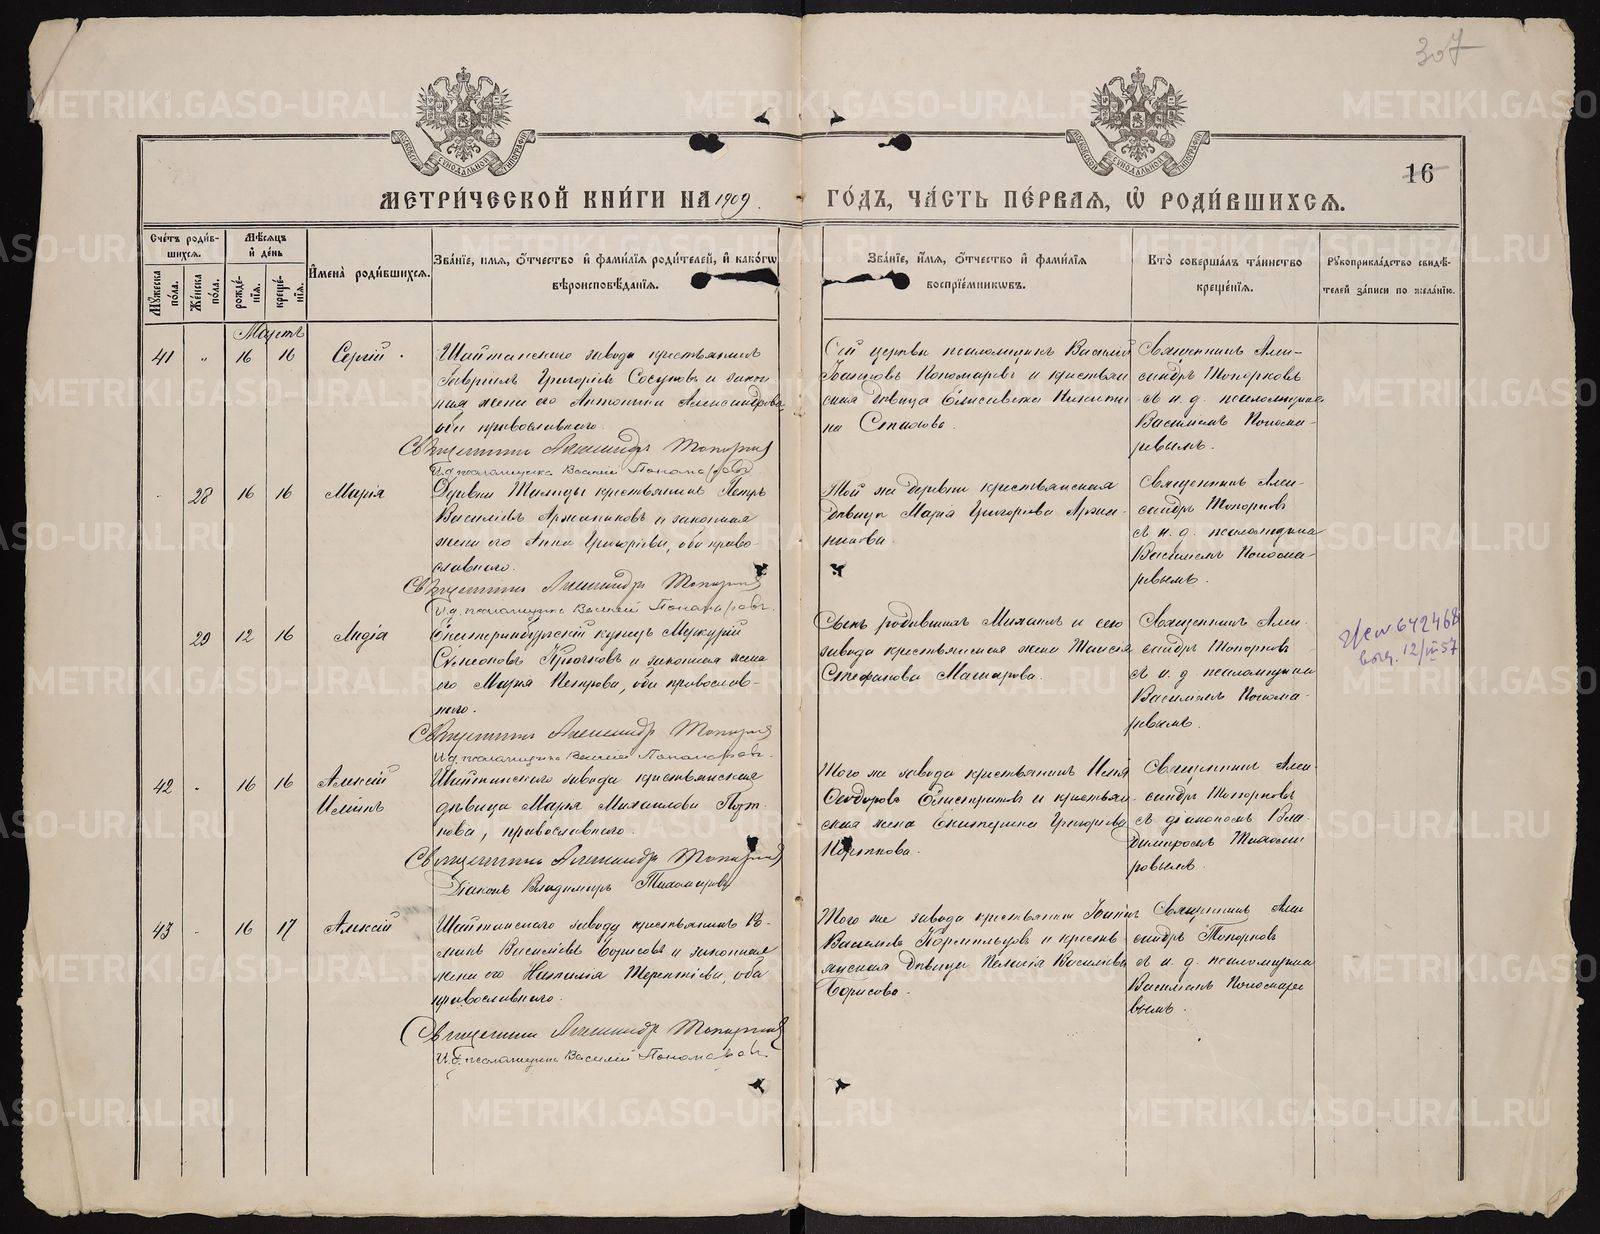 307
16
МЕТРИ́ЧЕСКОЙ КНИ́ГИ НА 1909 ГО́ДЪ, ЧА́СТЬ ПЕ́РВАЯ, Ѡ РОДИ́ВШИХСЯ.
Сче́тъ роди́в-
шихся.
Мѣ́сяцъ
и̂ де́нь
Мꙋ́жеска по́ла.
Же́нска по́ла.
рожде́-
нїя.
креще́-
нїя.
И̂мена̀ роди́вшихся.
Зва́нїе, и́мя, о́тчество и̂ фами́лїя роди́телей, и̂ како́гѡ
вѣроисповѣ́данїя.
Зва́нїе, и́мя, о́тчество и̂ фами́лїя
воспрїе́мниковъ.
Кто̀ соверша́лъ та́инство
креще́нїя.
Рꙋкоприкла́дство свидѣ́-
телей за́писи по жела́нїю.
Мартъ
41 " 16 16 Сергій
Шайтанскаго завода крестьянинъ
Гавріилъ Григоріевъ Сосуновъ и закон-
ная жена его Антонина Александрова
оба православнаго.
Священникъ Александръ Топорковъ
И.д. псаломщика Василій Пономаревъ
Сей церкви псаломщикъ Василій
Іоанновъ Пономаревъ и крестьян
ская дѣвица Елисавета Никити
на
Священникъ Алек-
сандръ Топорковъ
съ и. д. псаломщика
Василіемъ Понома-
ревымъ.
28 16 16 Марія
Деревни Талицы крестьянинъ Петръ
Василіевъ Аржанниковъ и законная
жена его Анна Григорьева, оба право-
славнаго.
Священникъ Александръ Топорковъ
И.д. псаломщика Василій Пономаревъ.
Той же деревни крестьянская
дѣвица Марія Григорьева Аржан-
никова.
Священникъ Алек-
сандръ Топорковъ
съ и. д. псаломщика
Василіемъ Понома-
ревымъ.
29 12 16 Лидія
Екатеринбургскій купецъ Меркурій
Симеоновъ Крючковъ и законная жена
его Марія Петрова, оба православ-
наго.
Священникъ Александръ Топорковъ
И.д. псаломщика Василій Пономаревъ.
Сынъ родившихъ Михаилъ и сего
завода крестьянская жена Таисія
Стефанова Макарова.
Священникъ Алек-
сандръ Топорковъ
съ и. д. псаломщика
Василіемъ Понома-
ревымъ.
642468
12/III 57
42 " 16 16 Алексій
Шайтанскаго завода крестьянская
дѣвица Марья Михаилова
православнаго.
Священникъ Александръ Топорковъ
Діаконъ Владимиръ Тихомировъ
Того же завода крестьянинъ Илія
Ѳеодоровъ Елистратовъ и крестьян-
ская жена Екатерина Григорьева
Священникъ Алек-
сандръ Топорковъ
съ діакономъ Вла-
димиромъ Тихоми-
ровымъ.
43 " 16 17 Алексій
Шайтанскаго завода крестьянинъ Ро-
манъ Василіевъ Борисовъ и законная
жена его Наталія Терентіева, оба
православнаго.
Священникъ Александръ Топорковъ
И.д. псаломщика Василій Пономаревъ.
Того же завода крестьянинъ Іоаннъ
Василіевъ Кормильцовъ и кресть-
янская дѣвица Пелагія Василіева
Борисова.
Священникъ Алек
сандръ Топорковъ
съ и. д. псаломщика
Василіемъ Пономаре
вымъ.
METRIKI.GASO-URAL.RU